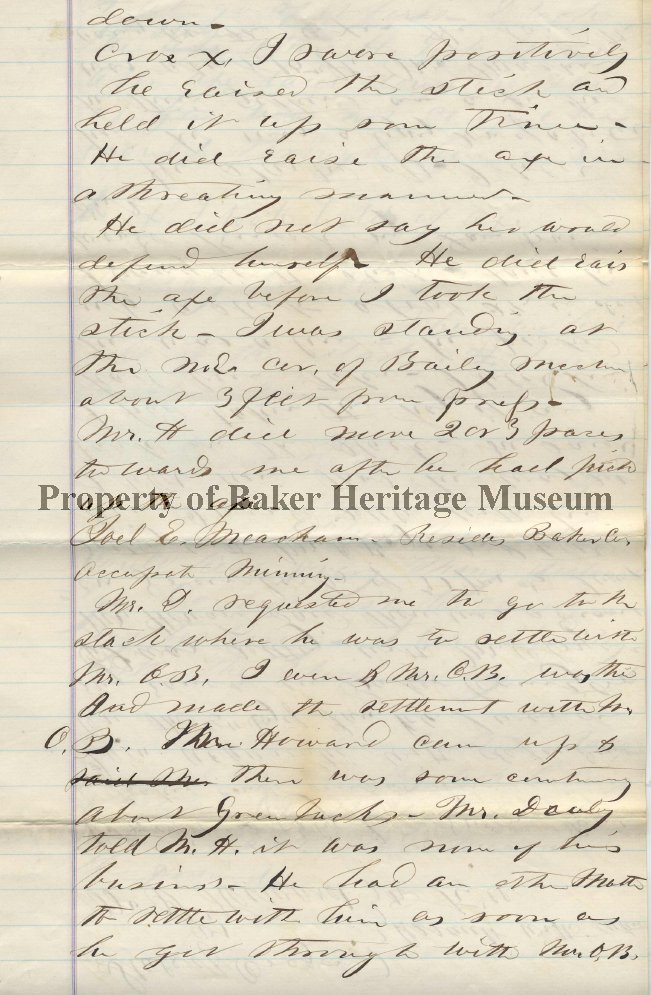 down -
Cros X, I swere positively
he raised the stick and
held it up some time -
He did raise the axe in
a threating manner -
He did not say he would
defend himself - He did rais
the axe before I took the
stick - I was standing at
the N.E. cor. of Baily
about 3 feet from -
Mr. H did move 2 or 3 paces
towards me after he had pick
up the axe -
Property of Baker Heritage Museum
Joel E. Meacham - Resides Baker Co,
Occupat Mining -
Mr. D. requested me to go to the
stack where he was to settle with
Mr. O.B. I & Mr. O.B. was
And made the settlment with Mr
O. B. Howard cam up &
said Mr. there was some
about Green Jacks - Mr.
told M. H. it was none of his
businss - He had an other Matter
to settle with him as soon as
he got through with Mr. O.B.